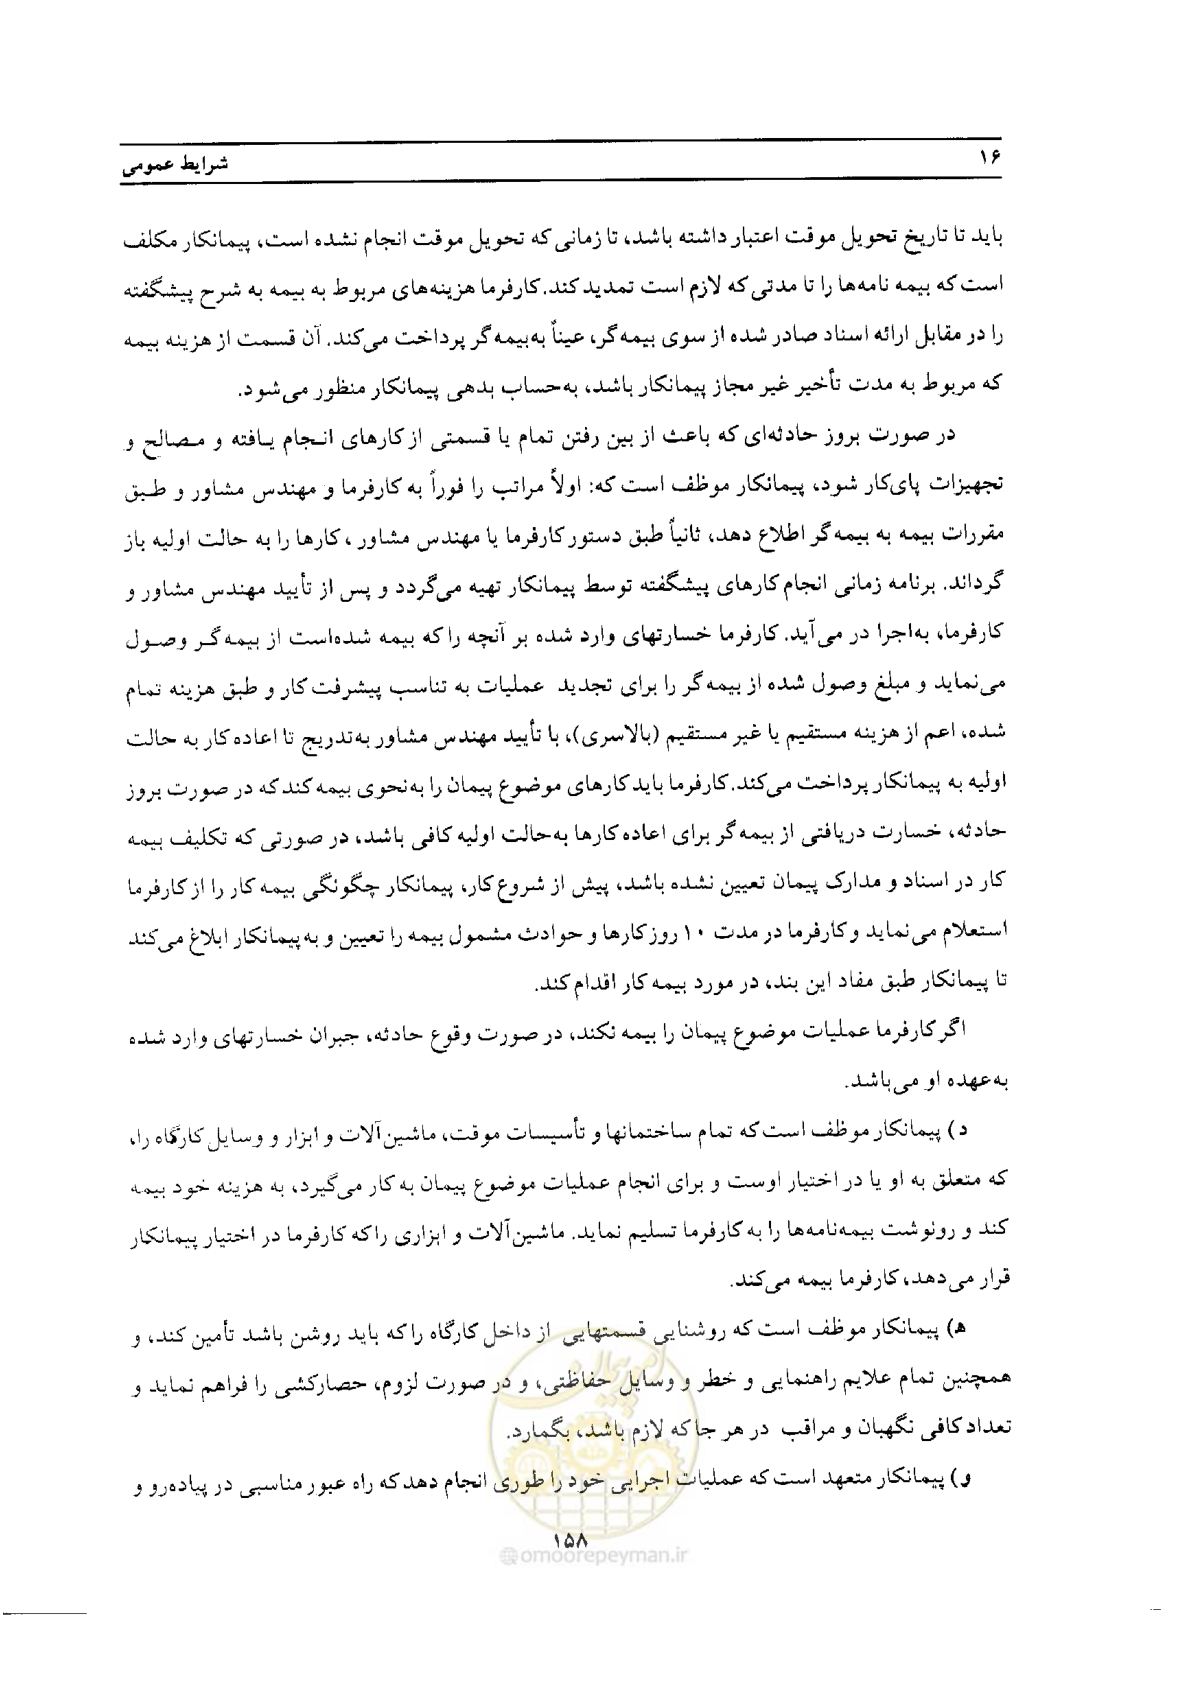 ۱۶
شرایط عمومی
باید تا تاریخ تحویل موقت اعتبار داشته باشد، تا زمانی که تحویل موقت انجام نشده است، پیمانکار مکلف
است که بیمه نامه‌ها را تا مدتی که لازم است تمدید کند. کارفرما هزینه‌های مربوط به بیمه به شرح پیشگفته
را در مقابل ارائه اسناد صادر شده از سوی بیمه‌گر، عیناً به بیمه‌گر پرداخت می‌کند. آن قسمت از هزینه بیمه
که مربوط به مدت تأخیر غیر مجاز پیمانکار باشد، به‌حساب بدهی پیمانکار منظور می‌شود.
در صورت بروز حادثه‌ای که باعث از بین رفتن تمام یا قسمتی از کارهای انجام یافته و مصالح و
تجهیزات پای‌کار شود، پیمانکار موظف است که: اولاً مراتب را فوراً به کارفرما و مهندس مشاور و طبق
مقررات بیمه به بیمه‌گر اطلاع دهد، ثانیاً طبق دستور کارفرما یا مهندس مشاور، کارها را به حالت اولیه باز
گرداند. برنامه زمانی انجام کارهای پیشگفته توسط پیمانکار تهیه می‌گردد و پس از تأیید مهندس مشاور و
کارفرما، به‌اجرا در می‌آید. کارفرما خسارتهای وارد شده بر آنچه را که بیمه شده‌است از بیمه‌گر وصول
می‌نماید و مبلغ وصول شده از بیمه‌گر را برای تجدید عملیات به تناسب پیشرفت کار و طبق هزینه تمام
شده، اعم از هزینه مستقیم یا غیر مستقیم (بالاسری)، با تأیید مهندس مشاور به‌تدریج تا اعاده کار به حالت
اولیه به پیمانکار پرداخت می‌کند. کارفرما باید کارهای موضوع پیمان را به‌نحوی بیمه کند که در صورت بروز
حادثه، خسارت دریافتی از بیمه‌گر برای اعاده کارها به‌حالت اولیه کافی باشد، در صورتی که تکلیف بیمه
کار در اسناد و مدارک پیمان تعیین نشده باشد، پیش از شروع کار، پیمانکار چگونگی بیمه کار را از کارفرما
استعلام می‌نماید و کارفرما در مدت ۱۰ روز کارها و حوادث مشمول بیمه را تعیین و به پیمانکار ابلاغ می‌کند
تا پیمانکار طبق مفاد این بند، در مورد بیمه کار اقدام کند.
اگر کارفرما عملیات موضوع پیمان را بیمه نکند، در صورت وقوع حادثه، جبران خسارتهای وارد شده
به‌عهده او می‌باشد.
د) پیمانکار موظف است که تمام ساختمانها و تأسیسات موقت، ماشین‌آلات و ابزار و وسایل کارگاه را،
که متعلق به او یا در اختیار اوست و برای انجام عملیات موضوع پیمان به کار می‌گیرد، به هزینه خود بیمه
کند و رونوشت بیمه‌نامه‌ها را به کارفرما تسلیم نماید. ماشین‌آلات و ابزاری را که کارفرما در اختیار پیمانکار
قرار می‌دهد، کارفرما بیمه می‌کند.
ه) پیمانکار موظف است که روشنایی قسمتهایی از داخل کارگاه را که باید روشن باشد تأمین کند، و
همچنین تمام علایم راهنمایی و خطر و وسایل حفاظتی، و در صورت لزوم، حصارکشی را فراهم نماید و
تعداد کافی نگهبان و مراقب در هر جا که لازم باشد، بگمارد.
و) پیمانکار متعهد است که عملیات اجرایی خود را طوری انجام دهد که راه عبور مناسبی در پیاده‌رو و
۱۵۸
@omoorepeyman.ir